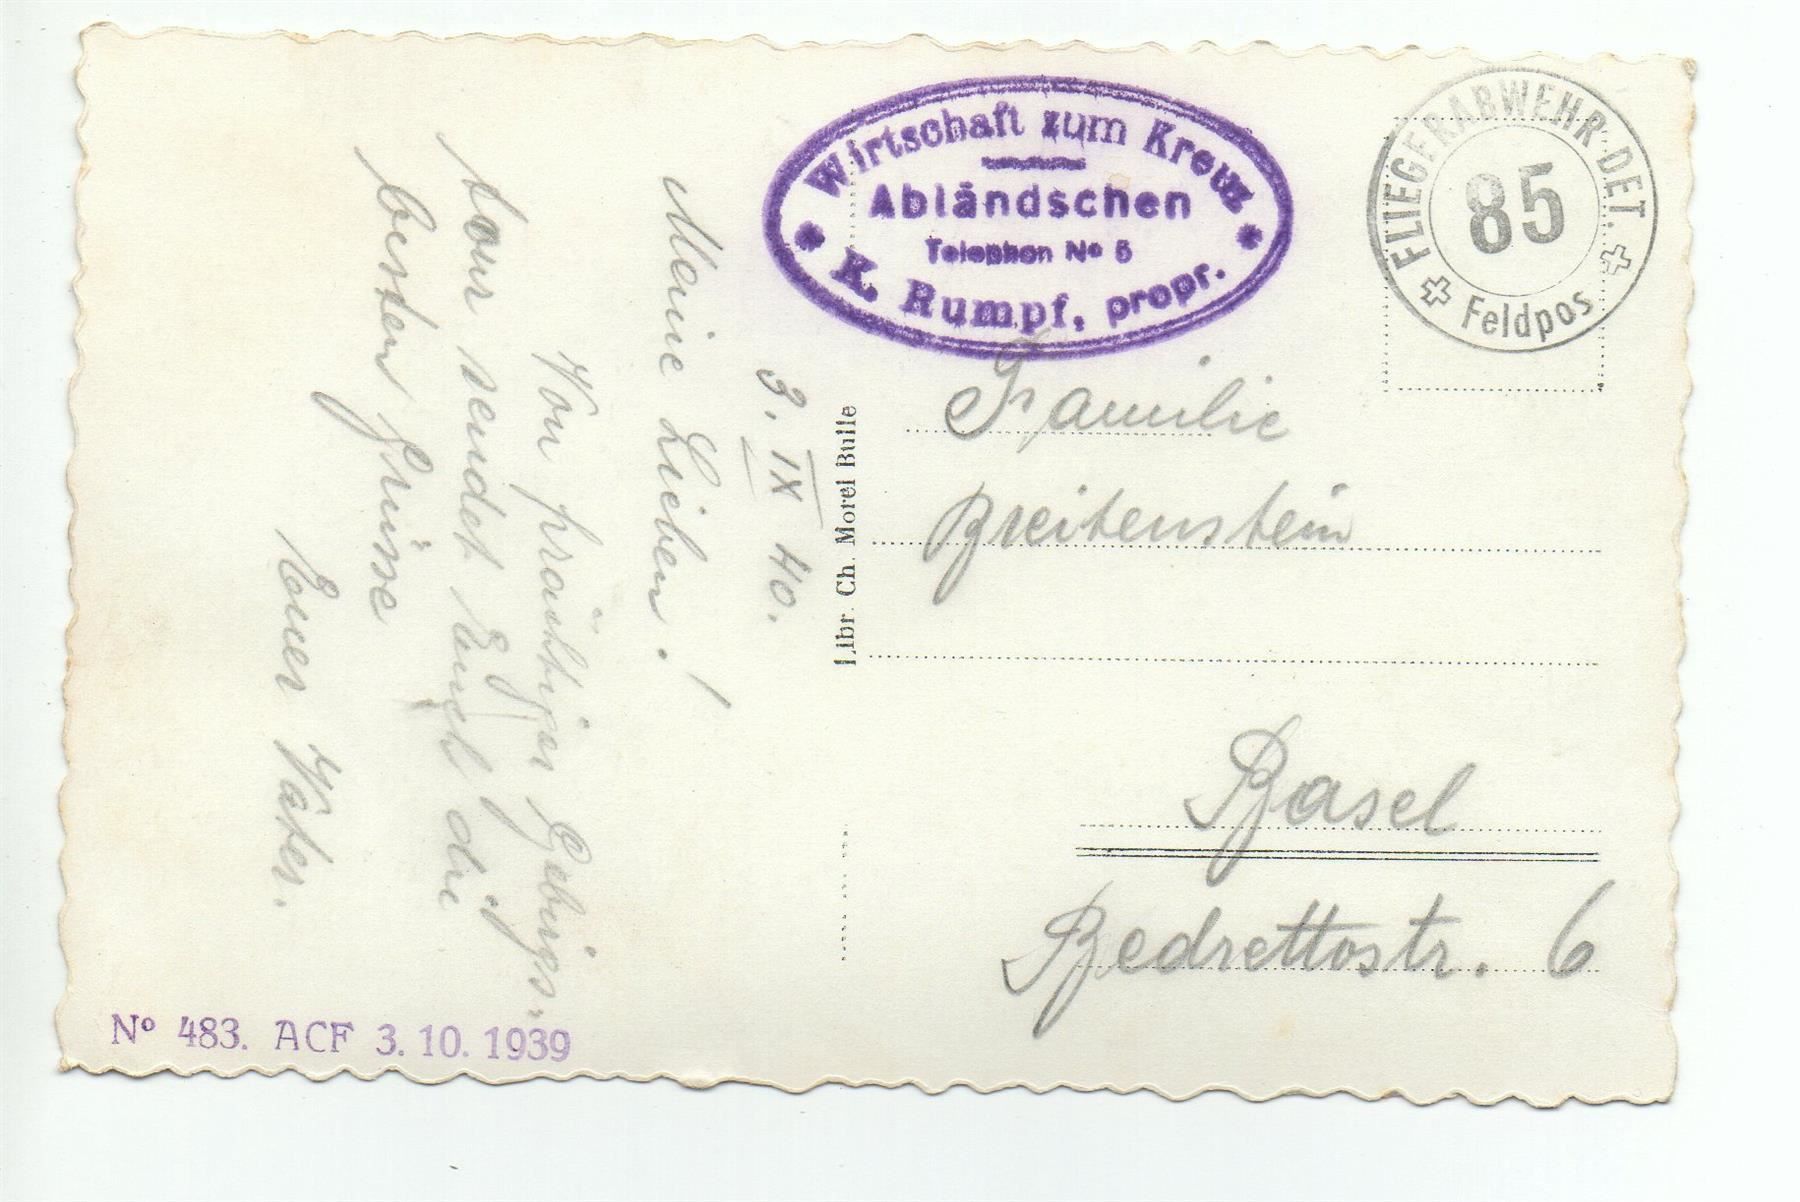 Wirtschaft zum Kreuz
Abländschen
Telephon No 5
K. Rumpf, propr.
FLIEGERABWEHR-DET.
85
Feldpos
3. IX 40.
Meine Lieben!
Von prächtiger Gebirgs-
tour sendet Euch die
besten Grüsse
Euer Vater.
Libr. Ch. Morel Bulle
Familie
Breitenstein
Basel
Bedrettostr. 6
No 483. ACF 3. 10. 1939